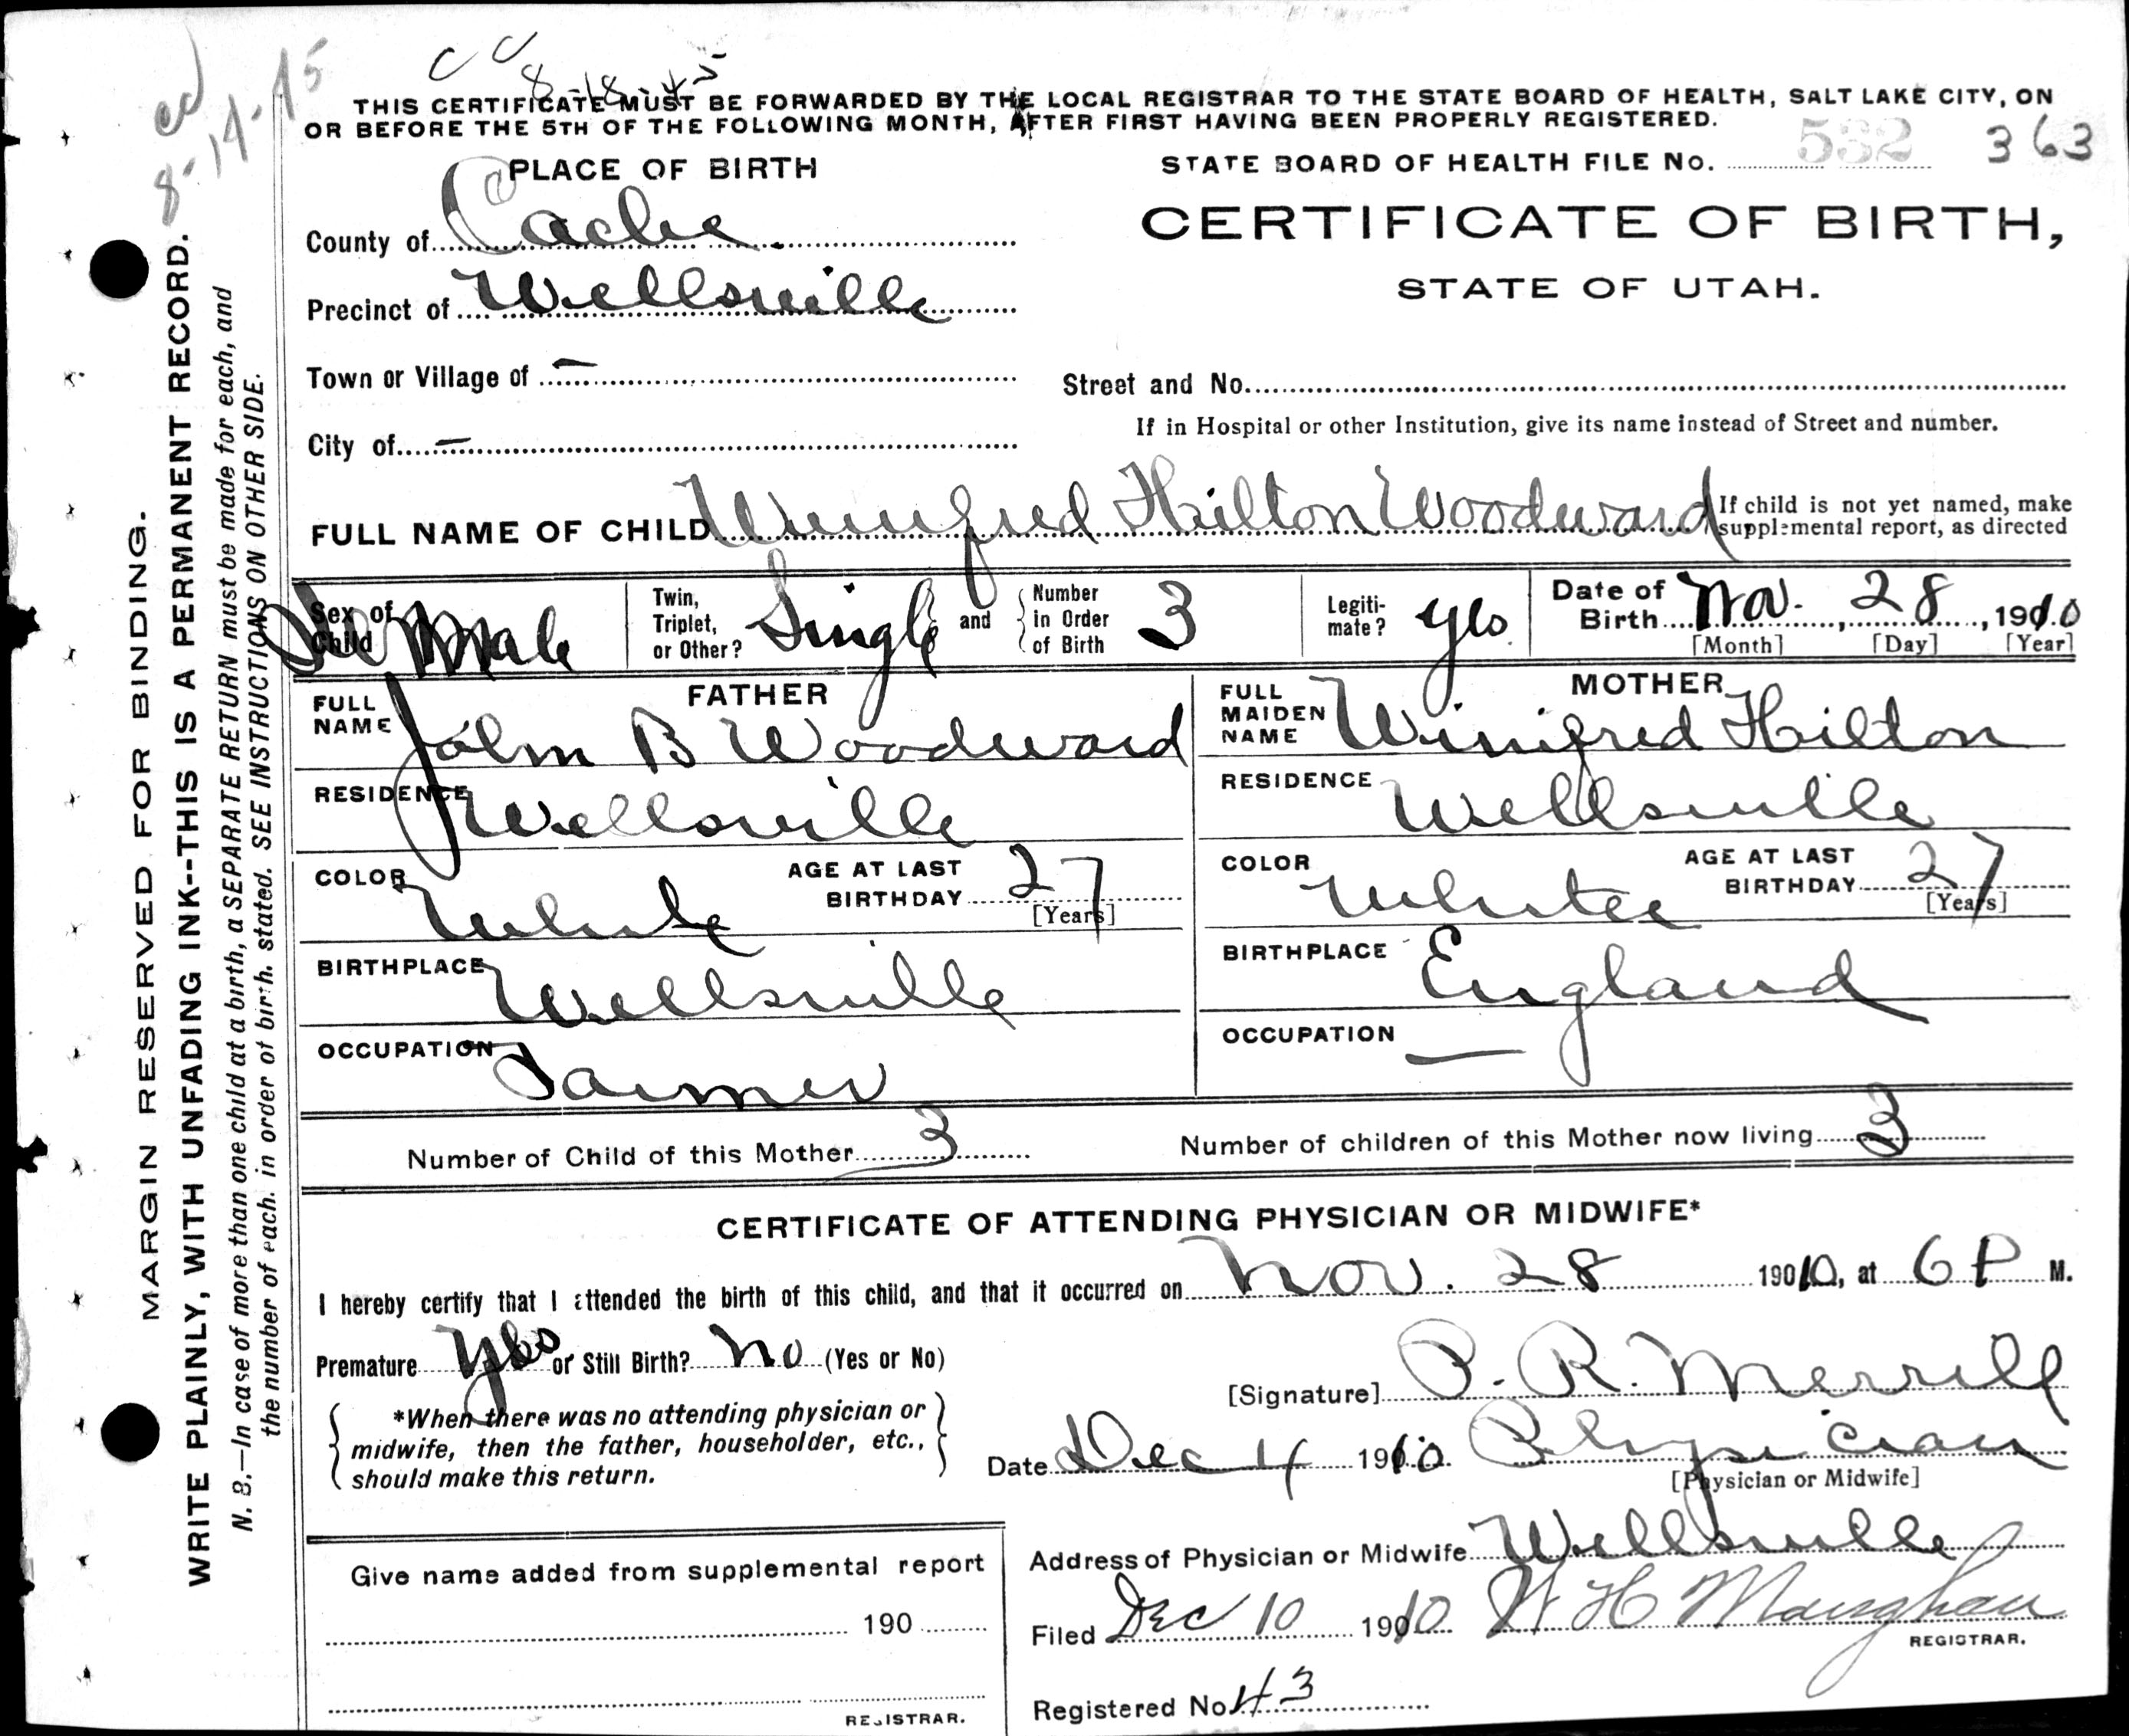 cc 8-18-45
cc 8-14-45
THIS CERTIFICATE MUST BE FORWARDED BY THE LOCAL REGISTRAR TO THE STATE BOARD OF HEALTH, SALT LAKE CITY, ON
OR BEFORE THE 5TH OF THE FOLLOWING MONTH, AFTER FIRST HAVING BEEN PROPERLY REGISTERED.
STATE BOARD OF HEALTH FILE No. 532 363
PLACE OF BIRTH
CERTIFICATE OF BIRTH,
STATE OF UTAH.
County of Cache
Precinct of Wellsville
Town or Village of —
Street and No.
If in Hospital or other Institution, give its name instead of Street and number.
City of —
FULL NAME OF CHILD Winifred Hilton Woodward
If child is not yet named, make
supplemental report, as directed
Sex of Child Fe Male
Twin, Triplet, or Other? Single and
Number in Order of Birth 3
Legiti-mate? yes
Date of Birth Nov. 28, 1910
[Month] [Day] [Year]
FATHER
FULL NAME John B Woodward
RESIDENCE Wellsville
COLOR White
AGE AT LAST BIRTHDAY 27
[Years]
BIRTHPLACE Wellsville
OCCUPATION Farmer
MOTHER
FULL MAIDEN NAME Winifred Hilton
RESIDENCE Wellsville
COLOR White
AGE AT LAST BIRTHDAY 27
[Years]
BIRTHPLACE England
OCCUPATION —
Number of Child of this Mother 3
Number of children of this Mother now living 3
CERTIFICATE OF ATTENDING PHYSICIAN OR MIDWIFE*
I hereby certify that I attended the birth of this child, and that it occurred on Nov. 28 1910, at 6 P M.
Premature Yes or Still Birth? No (Yes or No)
*When there was no attending physician or
midwife, then the father, householder, etc.,
should make this return.
[Signature] P. R. Merrill
Date Dec 4 1910. Physician
[Physician or Midwife]
Address of Physician or Midwife Wellsville
Filed Dec 10 1910 W H Maughan
REGISTRAR.
Registered No 43
Give name added from supplemental report
190
REGISTRAR.
MARGIN RESERVED FOR BINDING.
WRITE PLAINLY, WITH UNFADING INK--THIS IS A PERMANENT RECORD.
N. B.—In case of more than one child at a birth, a SEPARATE RETURN must be made for each, and
the number of each, in order of birth, stated. SEE INSTRUCTIONS ON OTHER SIDE.